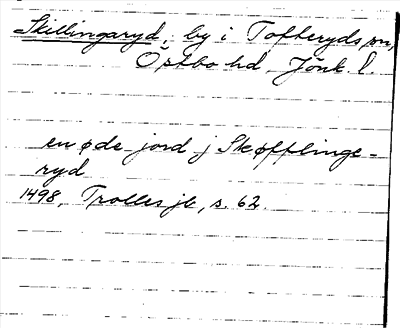 Skillingaryd, by i Tofteryds sn,
Östbo hd, Jönk. l.
en øde jord j Skøfflinge-
ryd
1498, Trolles jb, s. 62.